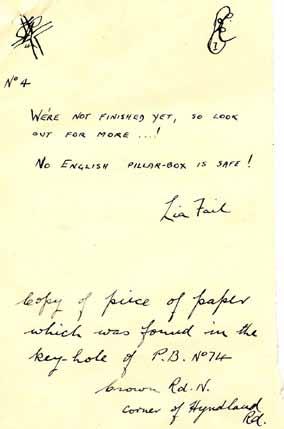 No 4
WE'RE NOT FINISHED YET, SO LOOK
OUT FOR MORE ...!
NO ENGLISH PILLAR-BOX IS SAFE!
Lia Fail
Copy of piece of paper
which was found in the
key-hole of P.B. No 74
Crown Rd. N.
corner of Hyndland
Rd.